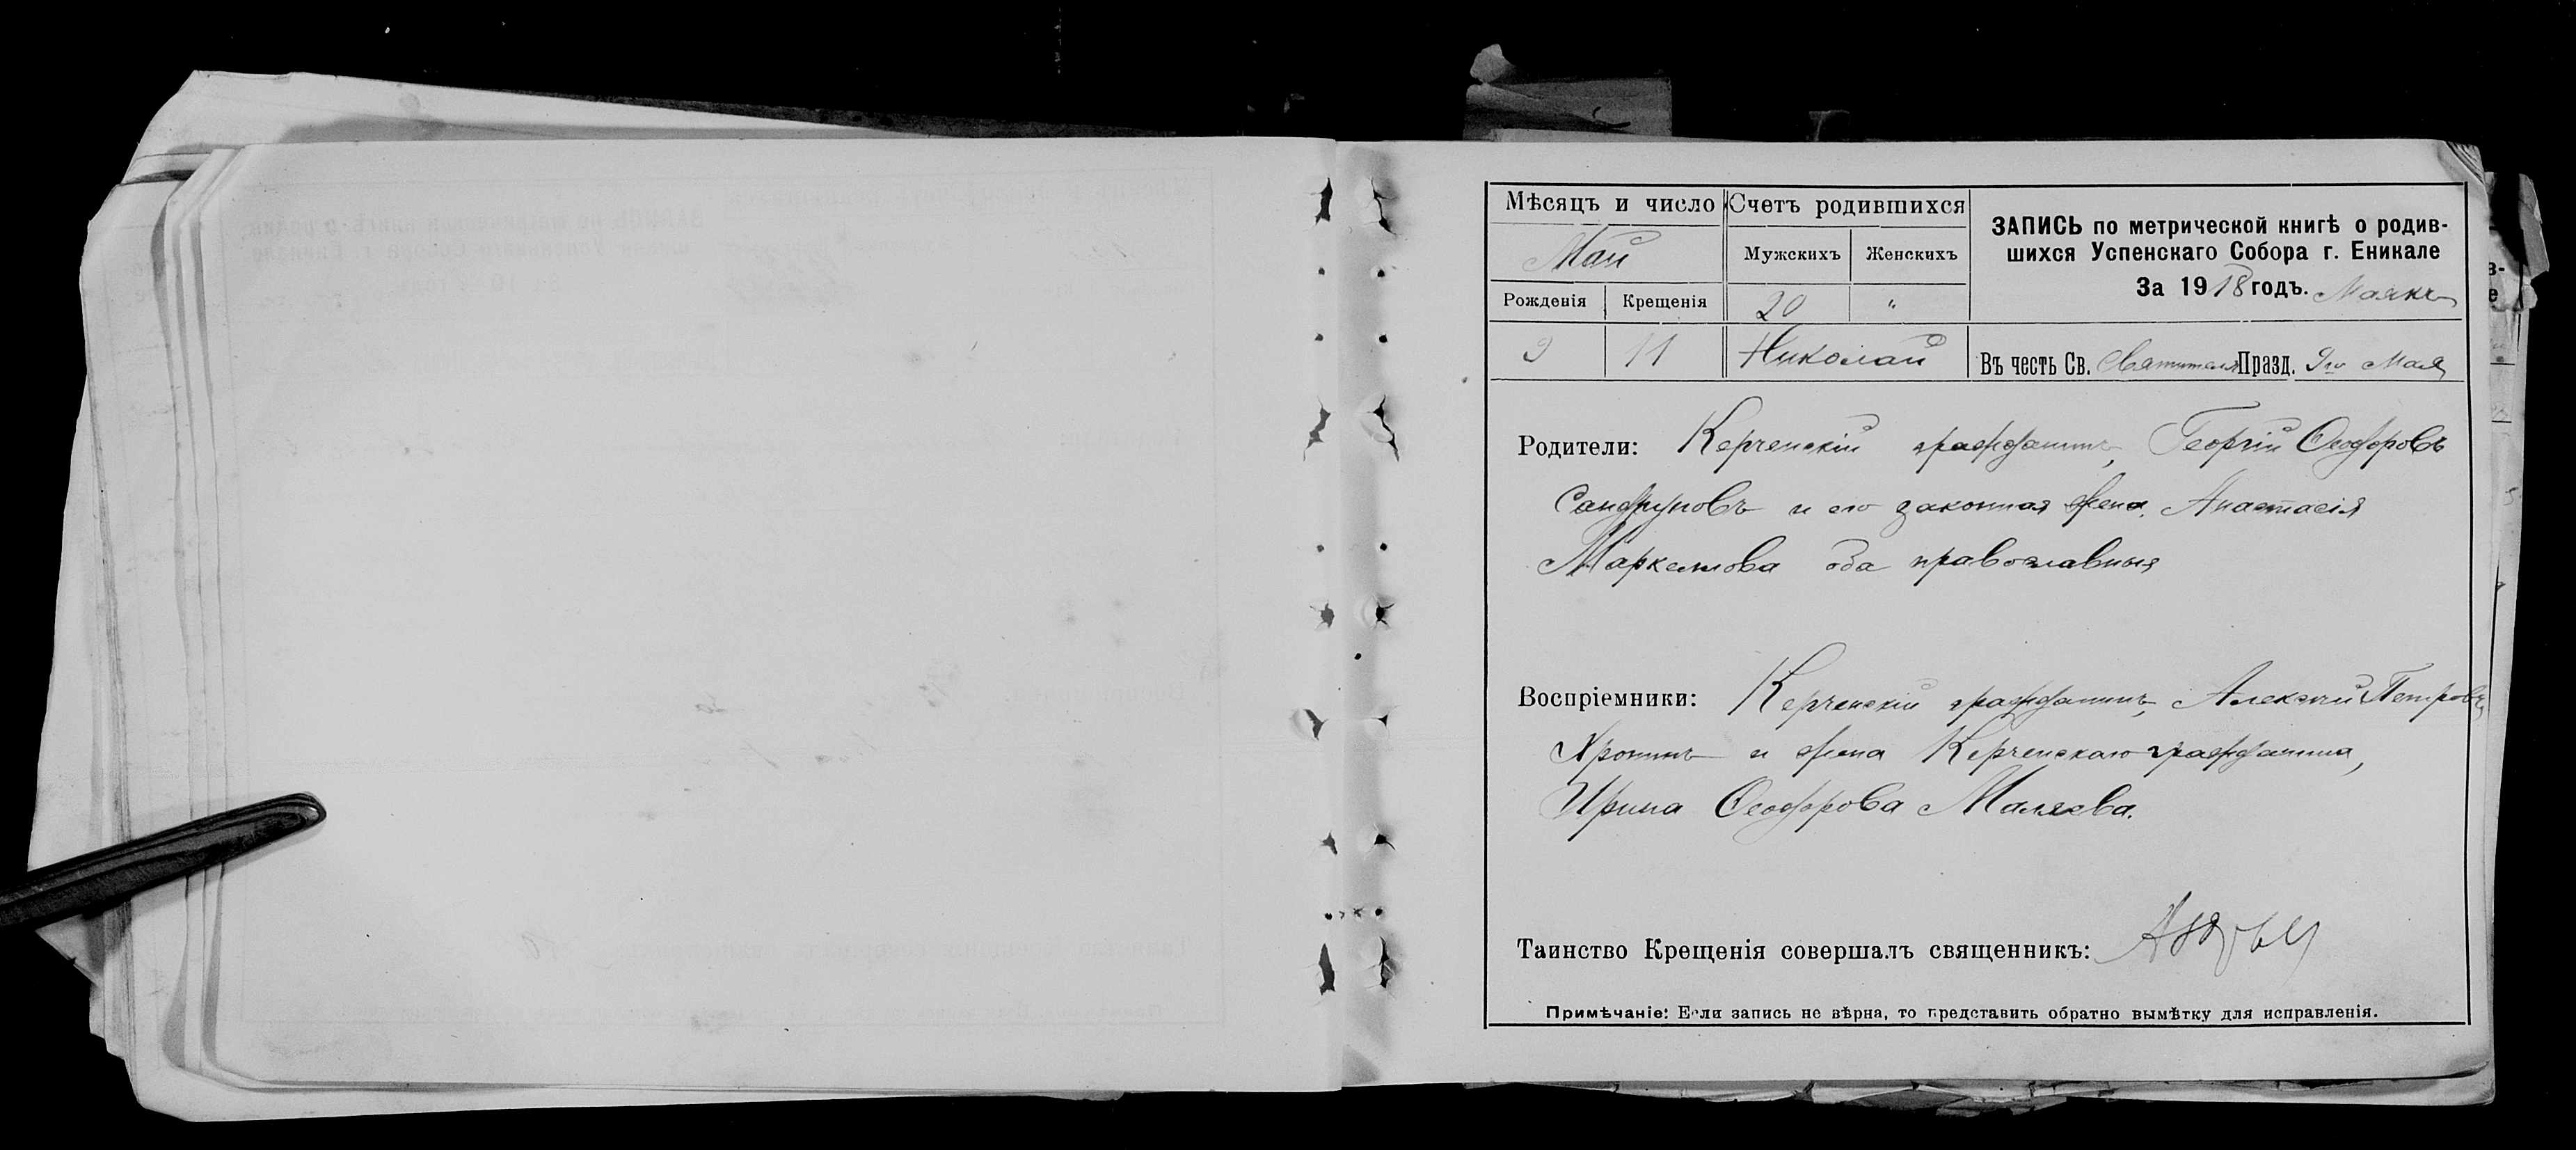 Мѣсяцъ и число
Май
Рожденія Крещенія
9 11
Счетъ родившихся
Мужскихъ Женскихъ
20 "
Николай
ЗАПИСЬ по метрической книгѣ о родив-
шихся Успенскаго Собора г. Еникале
За 1918 годъ. Маякъ
Въ честь Св. Святителя Празд. 9го Мая
Родители: Керченскій гражданинъ, Георгій Ѳеодоровъ
и его законная жена Анастасія
Маркеллова оба православныя
Воспріемники: Керченскій гражданинъ, Алексѣй Петровъ
Хронинъ и жена Керченскаго гражданина,
Ирина Ѳеодорова Маляева.
Таинство Крещенія совершалъ священникъ:
Примѣчаніе: Если запись не вѣрна, то представить обратно вымѣтку для исправленія.